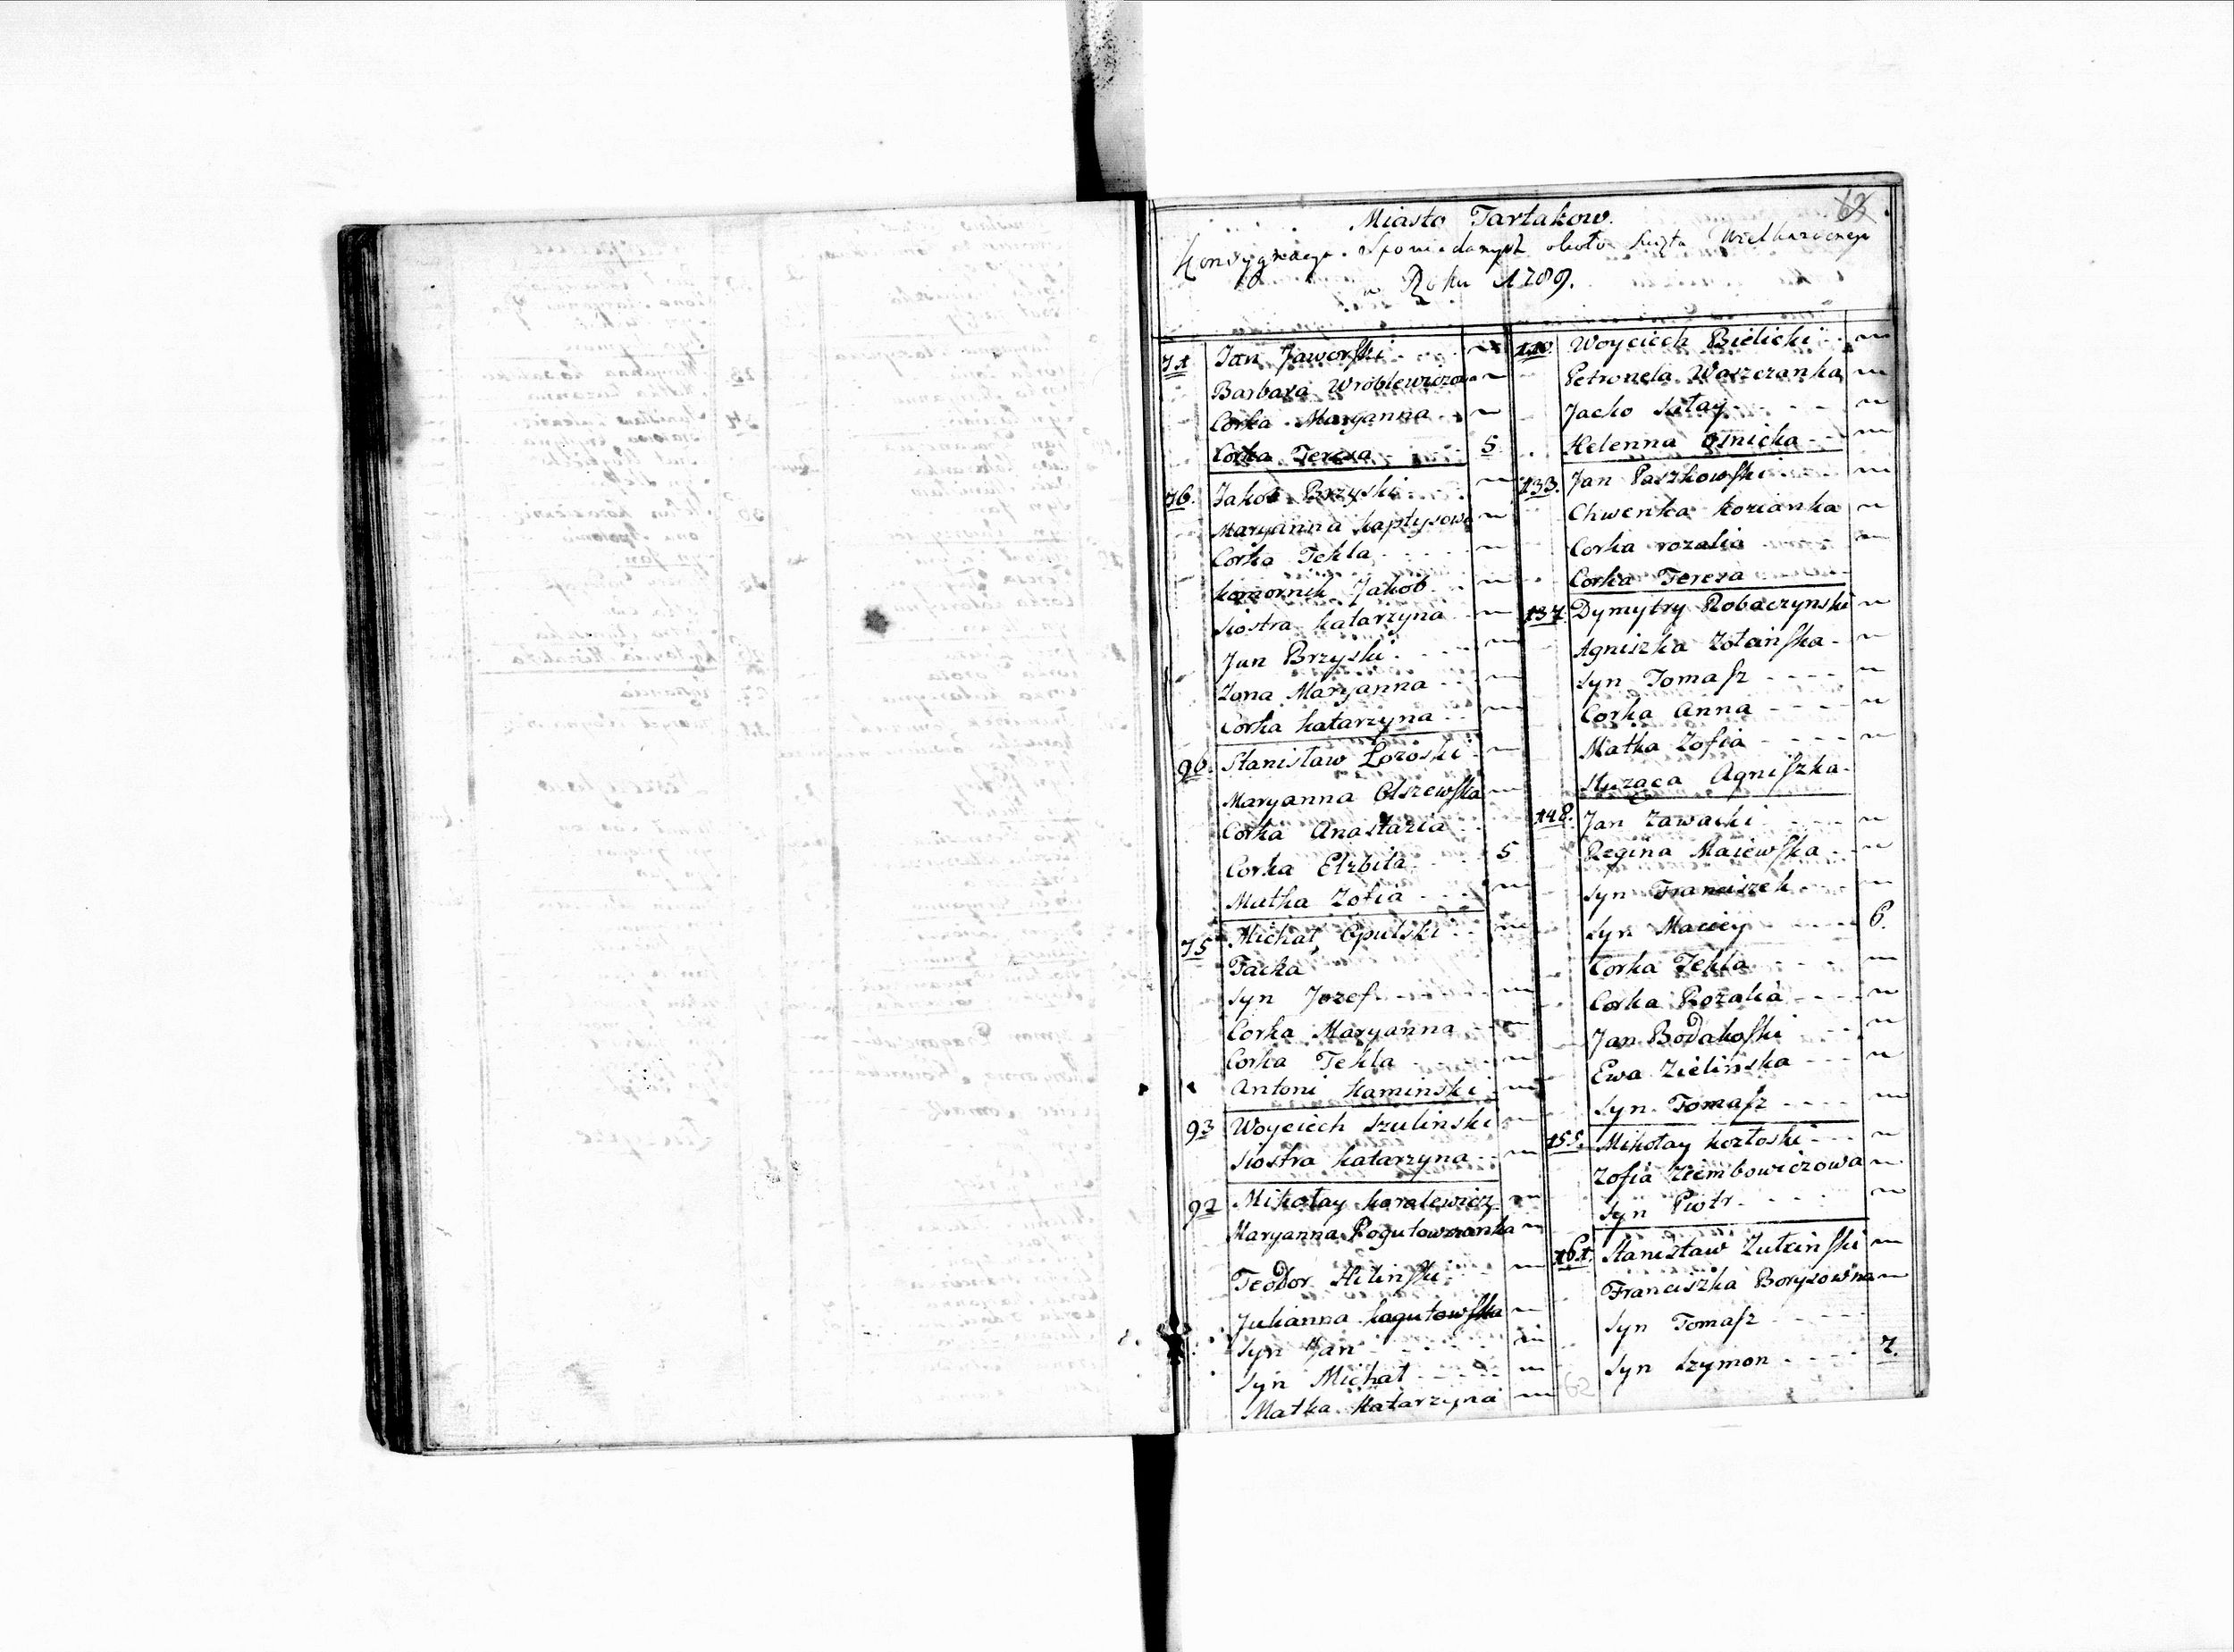 63
Miasto Tartakow.
Konsygnacya Spowiadanych około Święta Wielkanocnego
w Roku 1789.
71 Jan Jaworski
Barbara Wroblewiczowa
Corka Maryanna
Corka Teresa 5
76. Jakob Brzyski
Maryanna Kaptysowa
Corka Tekla
Komornik Jakob
Siostra Katarzyna
Jan Brzyski
Zona Maryanna
Corka Katarzyna
96. Stanisław Łozoski
Maryanna Olszewska
Corka Anastazia
Corka Elzbita 5
Matka Zofia
75 Michał Opulski
Facka
Syn Jozef
Corka Maryanna
Corka Tekla
Antoni Kaminski
93 Woyciech Szulinski
Siostra Katarzyna
92 Mikołay Karalewicz
Maryanna Rogutowszanka
Teodor Hilinski
Julianna Łagutowska
Syn Jan
Syn Michał
Matka Katarzyna
110. Woyciech Bielicki
Petronela Waszczanka
Jacko
Helenna Osnicka
133. Jan Paszkowski
Chwenka Kozianka
Corka rozalia
Corka Teresa
137 Dymytry Robaczynski
Agniszka Zołcinska
Syn Tomasz
Corka Anna
Matka Zofia
Agniszka
148. Jan Zawacki
Regina Maiewska
Syn Franciszek
Syn Maciey 6.
Corka Tekla
Corka Rozalia
Jan Bodakoski
Ewa Zielinska
Syn Tomasz
155. Mikołay Kozłoski
Zofia Ziembowiczowa
Syn Piotr
161. Stanisław Zułcinski
Franciszka Borysowna
Syn Tomasz
Syn Szymon 7.
62